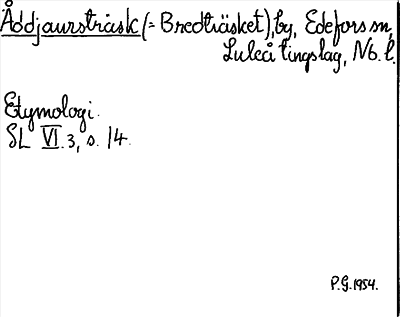 Åddjaursträsk (= Bredträsket), by, Edefors sn,
Luleå tingslag, Nb. l.
Etymologi.
SL VI.3, s. 14.
P.G. 1954.